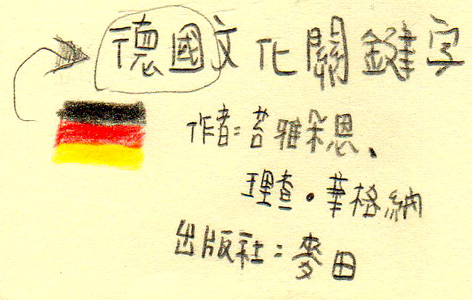 德國文化關鍵字
作者:苔雅朵恩、
理查·華格納
出版社:麥田